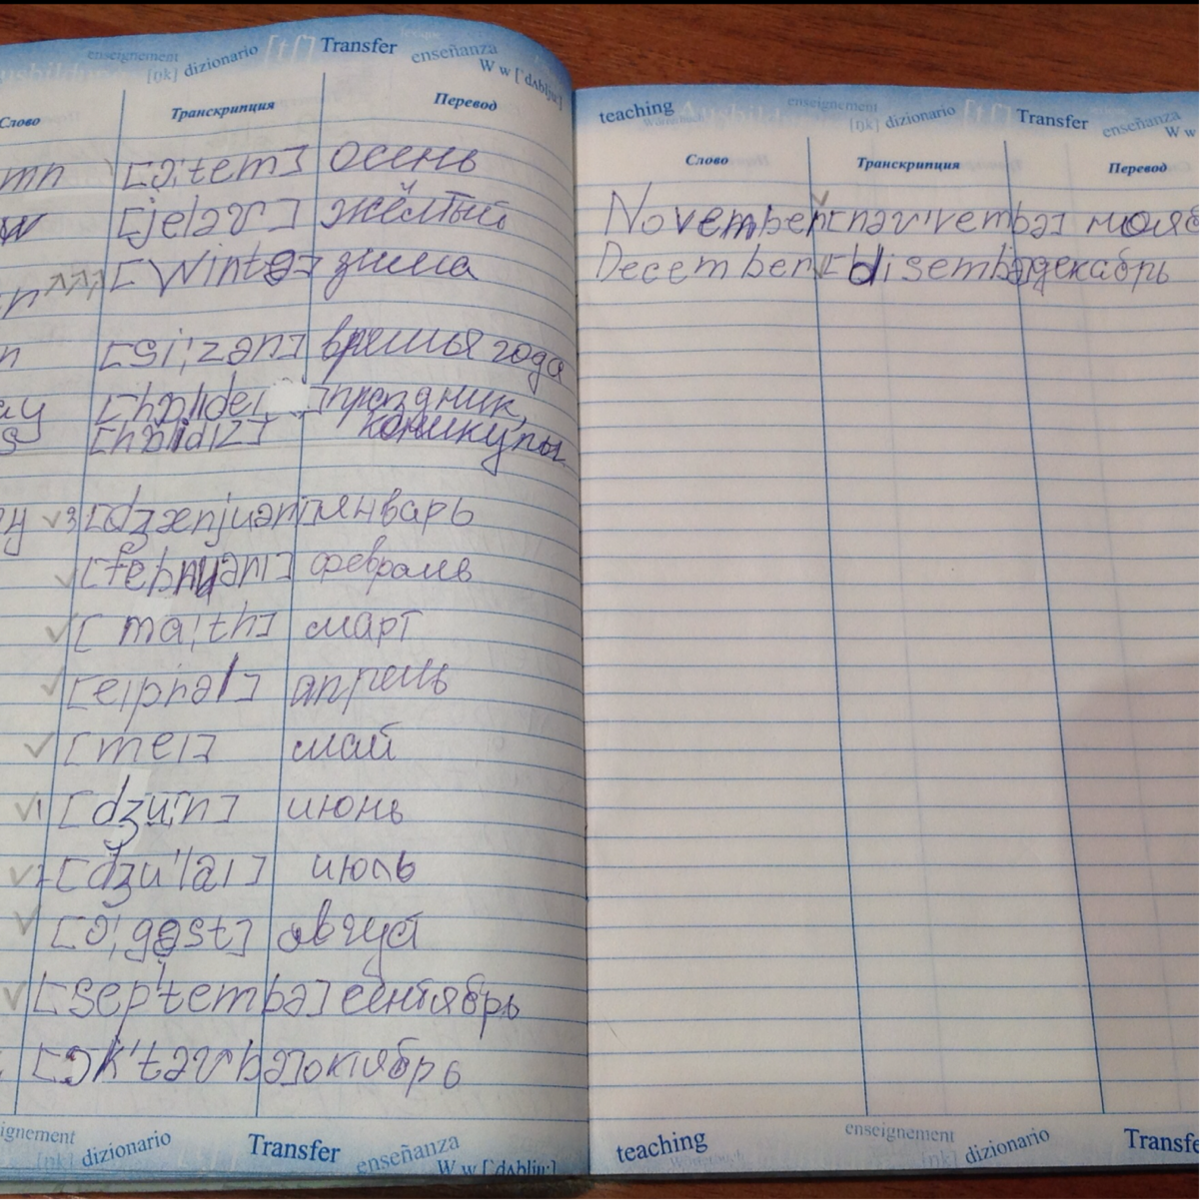 enseignement [ŋk] dizionario [tʃ] Transfer enseñanza W w ['dʌblju:]
Слово Транскрипция Перевод
[ɔ:tem] осень
[jeləʊ] жёлтый
[Wintə] зима
[si:zən] время года
[hɔlidei] праздник,
[hɔlidiz] каникулы
[dʒænjuəri] январь
[februəri] февраль
[ma:th] март
[eiprəl] апрель
[mei] май
[dʒu:n] июнь
[dʒu'lai] июль
[ɔ:gəst] август
[sep'tembə] сентябрь
[ɔk'təʊbə] октябрь
ignement [ŋk] dizionario Transfer enseñanza W w ['dʌblju:]
teaching enseignement [ŋk] dizionario [tʃ] Transfer enseñanza W w
Слово Транскрипция Перевод
November [nəʊ'vembə] нояб
December [disembə] декабрь
teaching enseignement [ŋk] dizionario Transfe